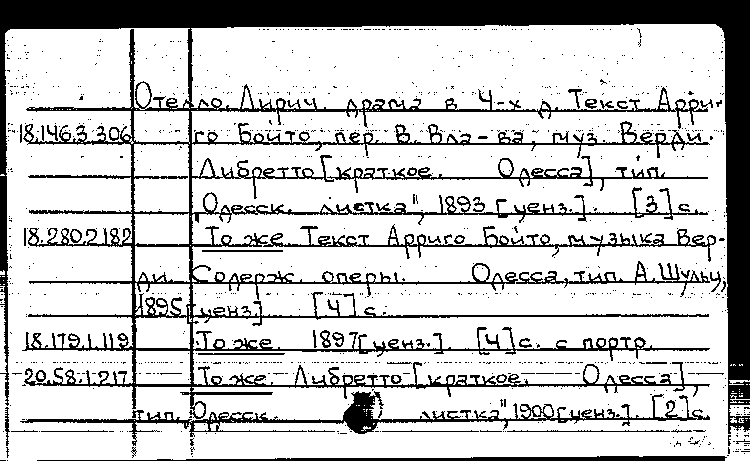 Отелло. Лирич. драма в 4-х д. Текст Арри-
18.146.3.306 го Бойто, пер. В. Вла-ва, муз. Верди.
Либретто [краткое. Одесса], тип.
„Одесск. листка", 1893 [ценз.]. [3] с.
18.280.2.182 То же Текст Арриго Бойто, музыка Вер-
ди. Содерж. оперы. Одесса, тип. А. Шульц,
1895 [ценз.] [4] с.
18.179.1.119 То же. 1897 [ценз.]. [4] с. с портр.
20.58.1.217 То же. Либретто [краткое. Одесса],
тип. „Одесск. листка", 1900 [ценз.]. [2] с.